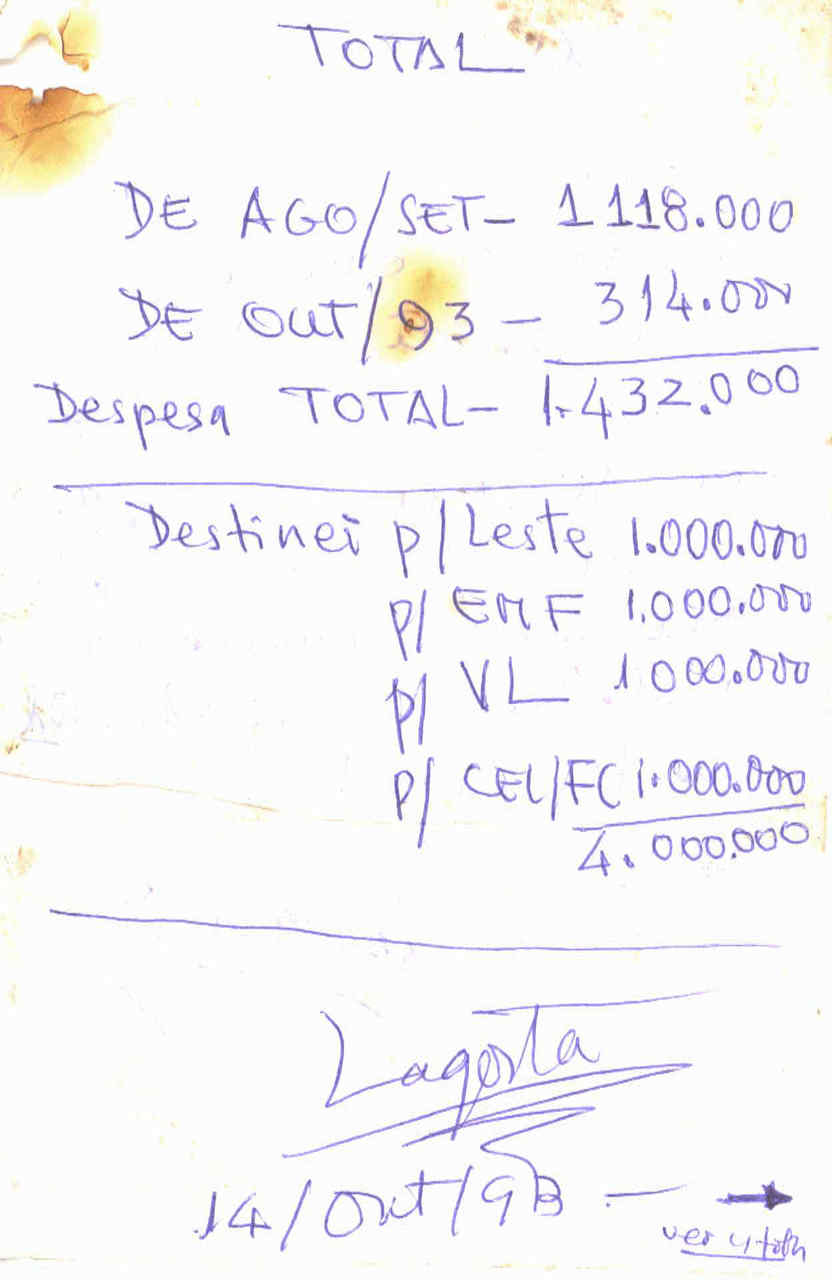 TOTAL
DE AGO/SET- 1118.000
DE OUT/93 - 314.000
Despesa TOTAL- 1.432.000
Destinei p/Leste 1.000.000
p/ EMF 1.000.000
p/ VL 1000.000
p/ CEL/FC 1.000.000
4.000.000
Lagosta
14/Out/93 - →
ver